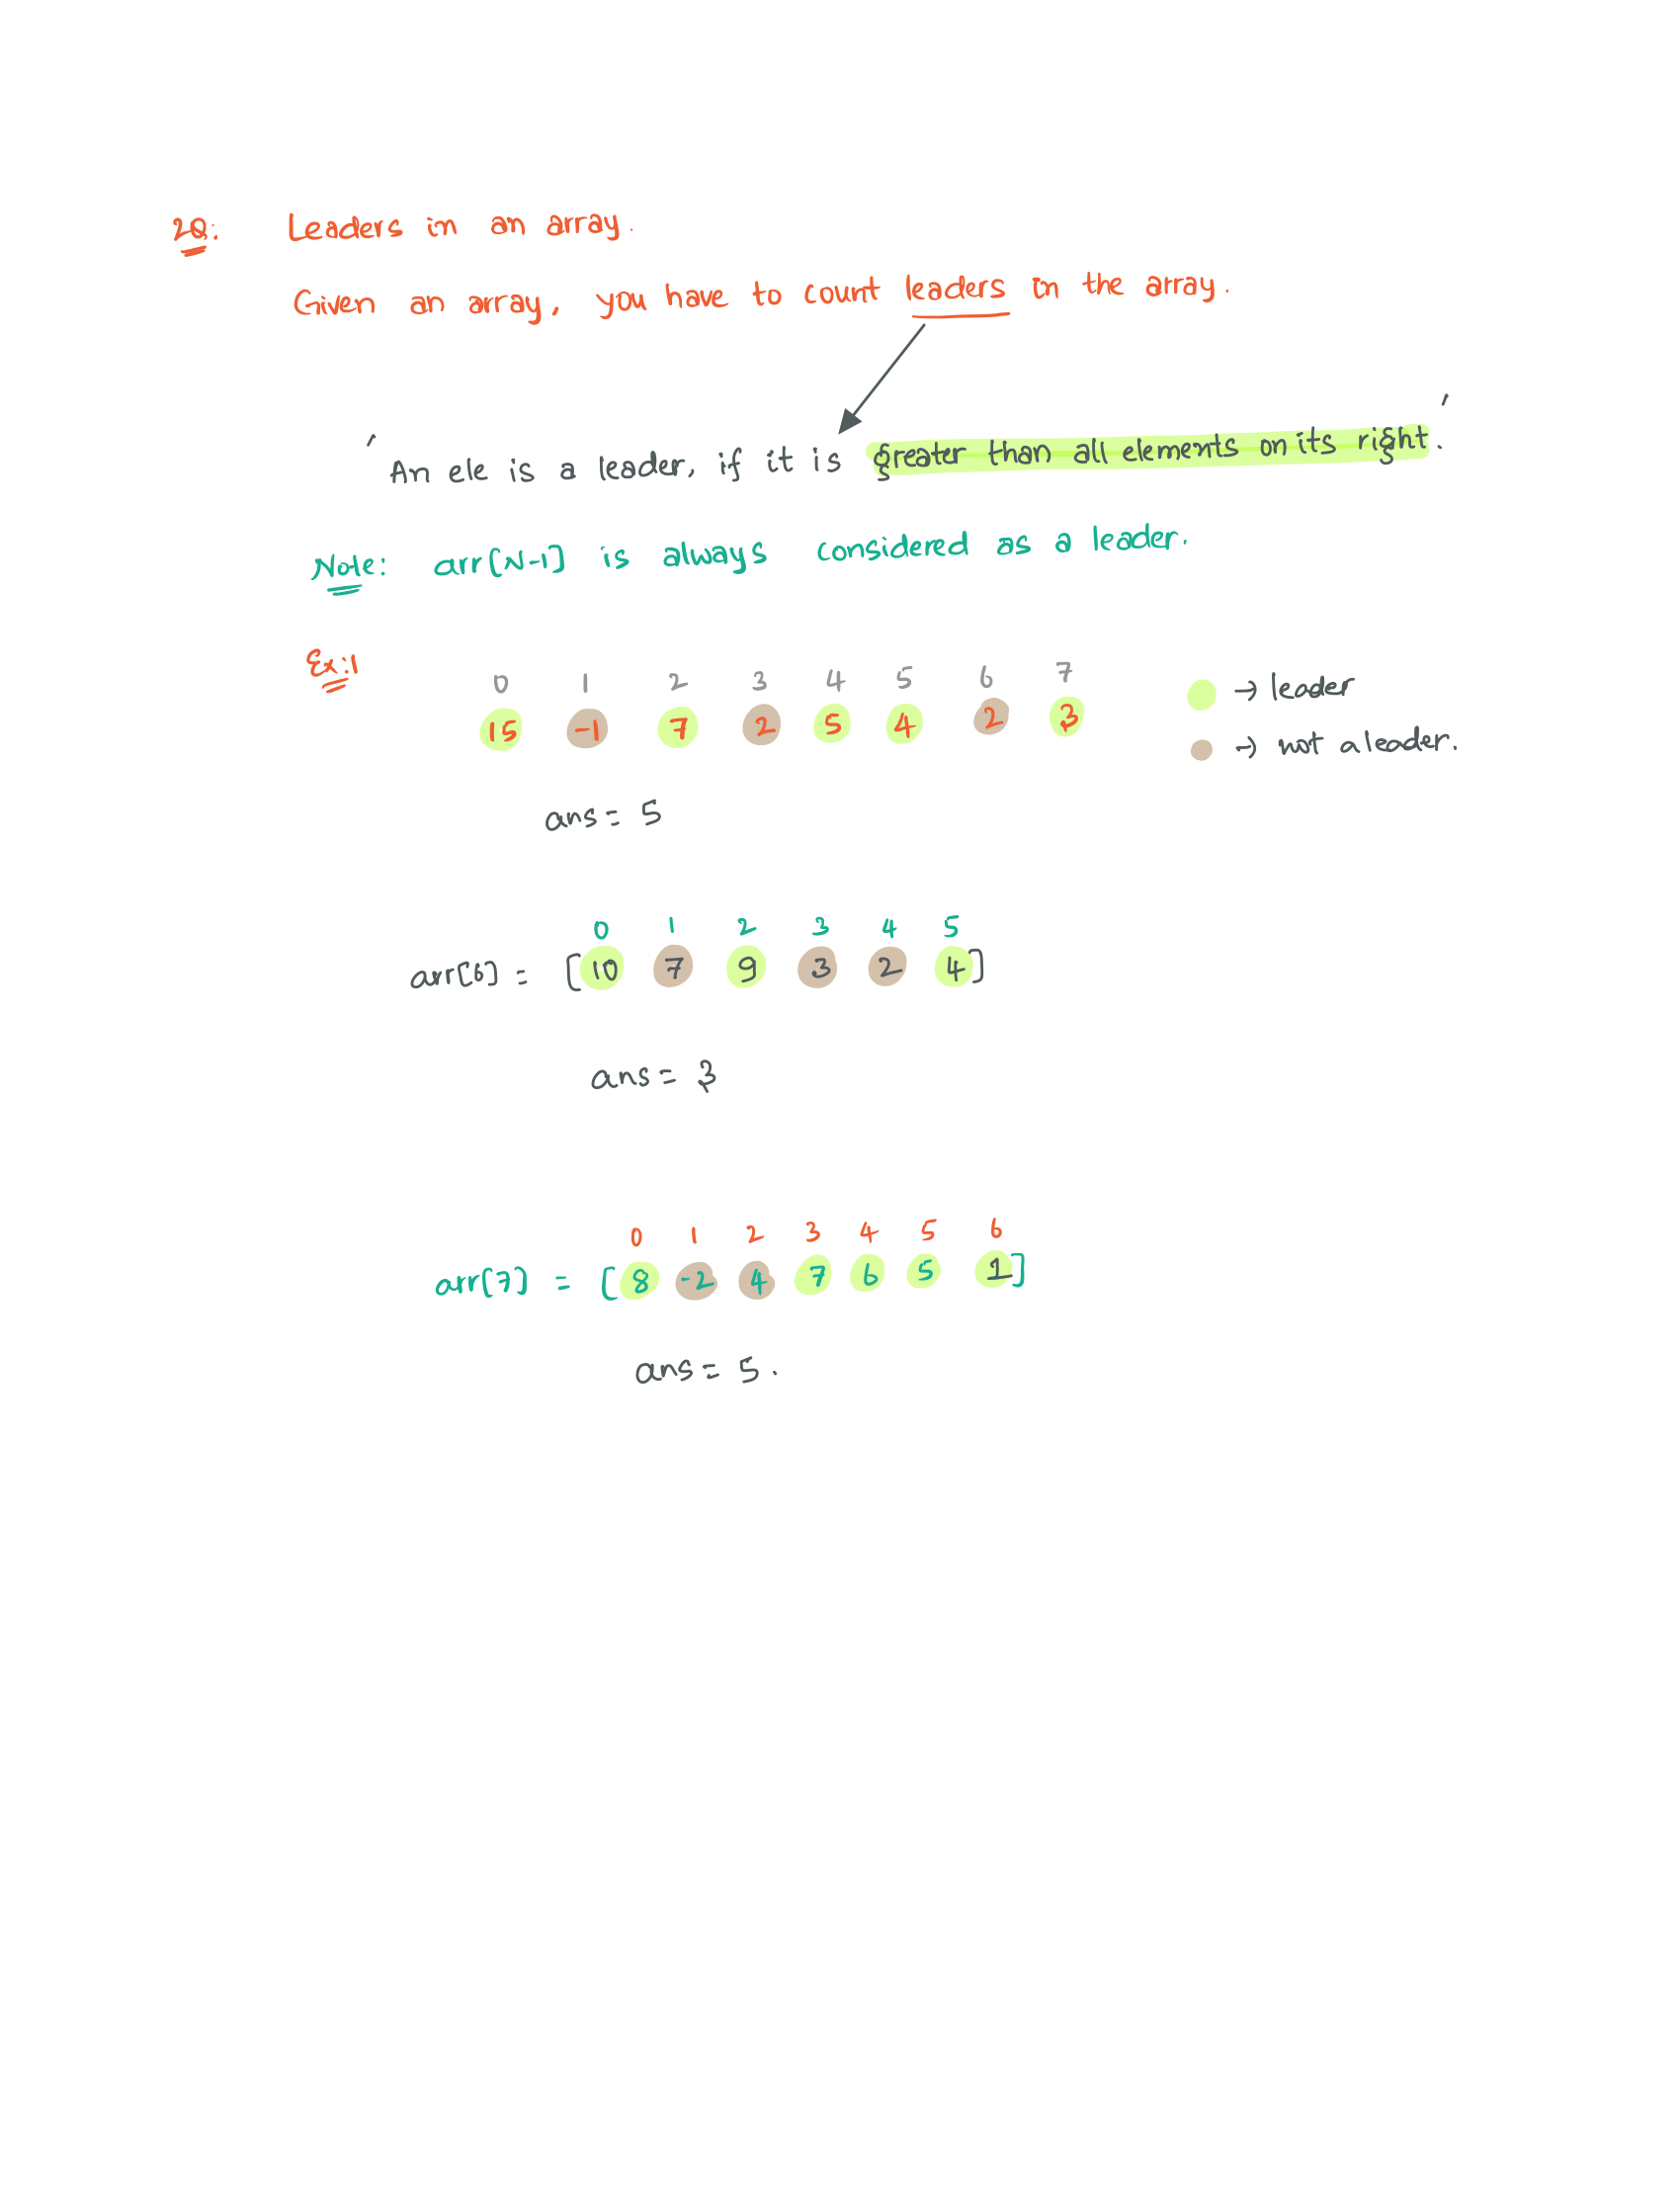 2Q: Leaders in an array.
Given an array, you have to count leaders in the array.
' An ele is a leader, if it is greater than all elements on its right. '
Note: arr[N-1] is always considered as a leader.
Ex:1
0 1 2 3 4 5 6 7
15 -1 7 2 5 4 2 3
→ leader
→ not a leader.
ans = 5
0 1 2 3 4 5
arr[6] = [10 7 9 3 2 4]
ans = 3
0 1 2 3 4 5 6
arr[7] = [8 -2 4 7 6 5 1]
ans = 5.